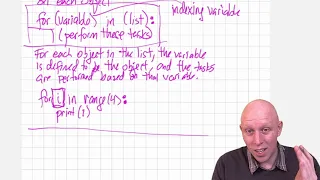 on each object
for (variable) in (list):
(perform these tasks)
indexing variable
For each object in the list, the variable
is defined to be the object, and the tasks
are performed based on that variable.
for i in range(4):
print(i)